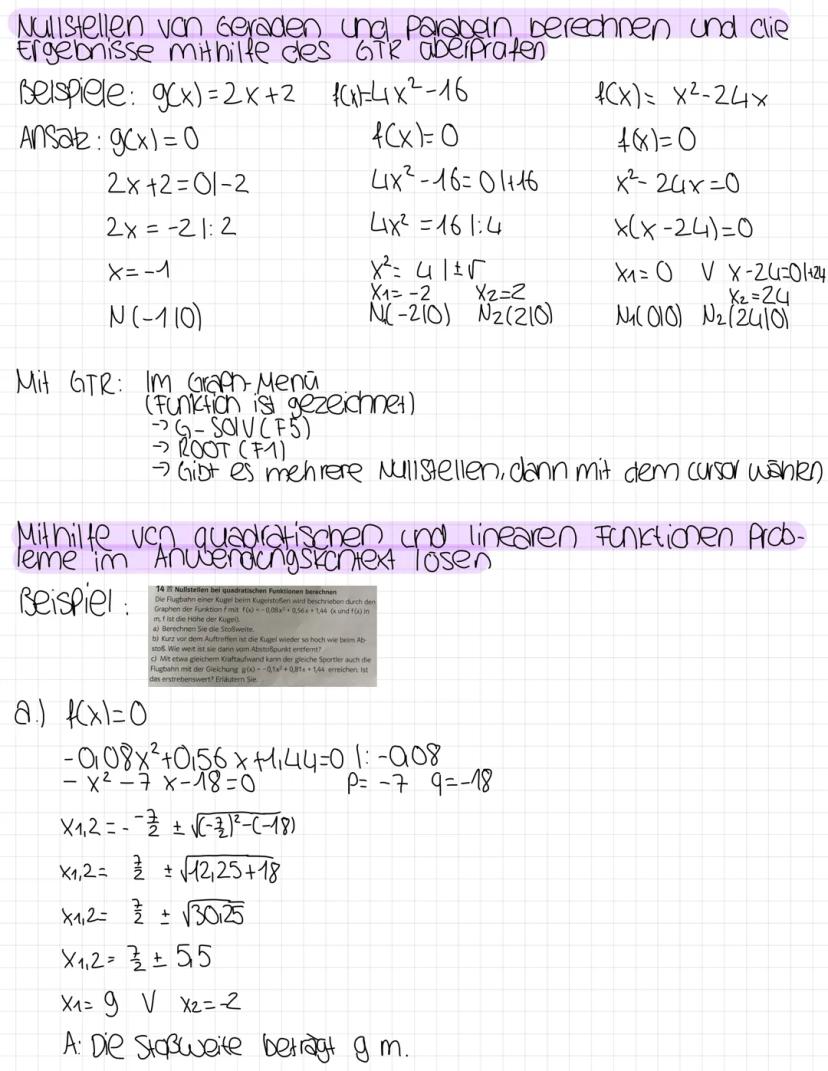 Nullstellen von Geraden und Parabeln berechnen und die
Ergebnisse mithilfe des GTR überprüfen
Beispiele: g(x)=2x+2 f(x)=4x²-16 f(x)= x²-24x
Ansatz: g(x)=0 f(x)=0 f(x)=0
2x+2=0|-2 4x²-16=0|+16 x²-24x=0
2x = -2|:2 4x² =16|:4 x(x-24)=0
x=-1 x²= 4|±√ x1=0 V x-24=0|+24
x1=-2 x2=2 x2=24
N(-1|0) N(-2|0) N2(2|0) N1(0|0) N2(24|0)
Mit GTR: Im Graph-Menü
(Funktion ist gezeichnet)
→ G-SOLV(F5)
→ ROOT (F1)
→ Gibt es mehrere Nullstellen, dann mit dem cursor wählen
Mithilfe von quadratischen und linearen Funktionen Prob-
leme im Anwendungskontext lösen
Beispiel:
14 Nullstellen bei quadratischen Funktionen berechnen
Die Flugbahn einer Kugel beim Kugelstoßen wird beschrieben durch den
Graphen der Funktion f mit f(x) = -0,08x² + 0,56x + 1,44 (x und f(x) in
m, f ist die Höhe der Kugel).
a) Berechnen Sie die Stoßweite.
b) Kurz vor dem Auftreffen ist die Kugel wieder so hoch wie beim Ab-
stoß. Wie weit ist sie dann vom Abstoßpunkt entfernt?
c) Mit etwa gleichem Kraftaufwand kann der gleiche Sportler auch die
Flugbahn mit der Gleichung g(x) = -0,1x² + 0,81x + 1,44 erreichen. Ist
das erstrebenswert? Erläutern Sie.
a.) f(x)=0
-0,08x²+0,56x+1,44=0 |: -0,08
- x² -7 x-18=0 p= -7 q=-18
x1,2 = - -7/2 ± √(-7/2)²-(-18)
x1,2= 7/2 ± √12,25+18
x1,2= 7/2 ± √30,25
x1,2= 7/2 ± 5,5
x1= 9 V x2=-2
A: Die Stoßweite beträgt 9 m.